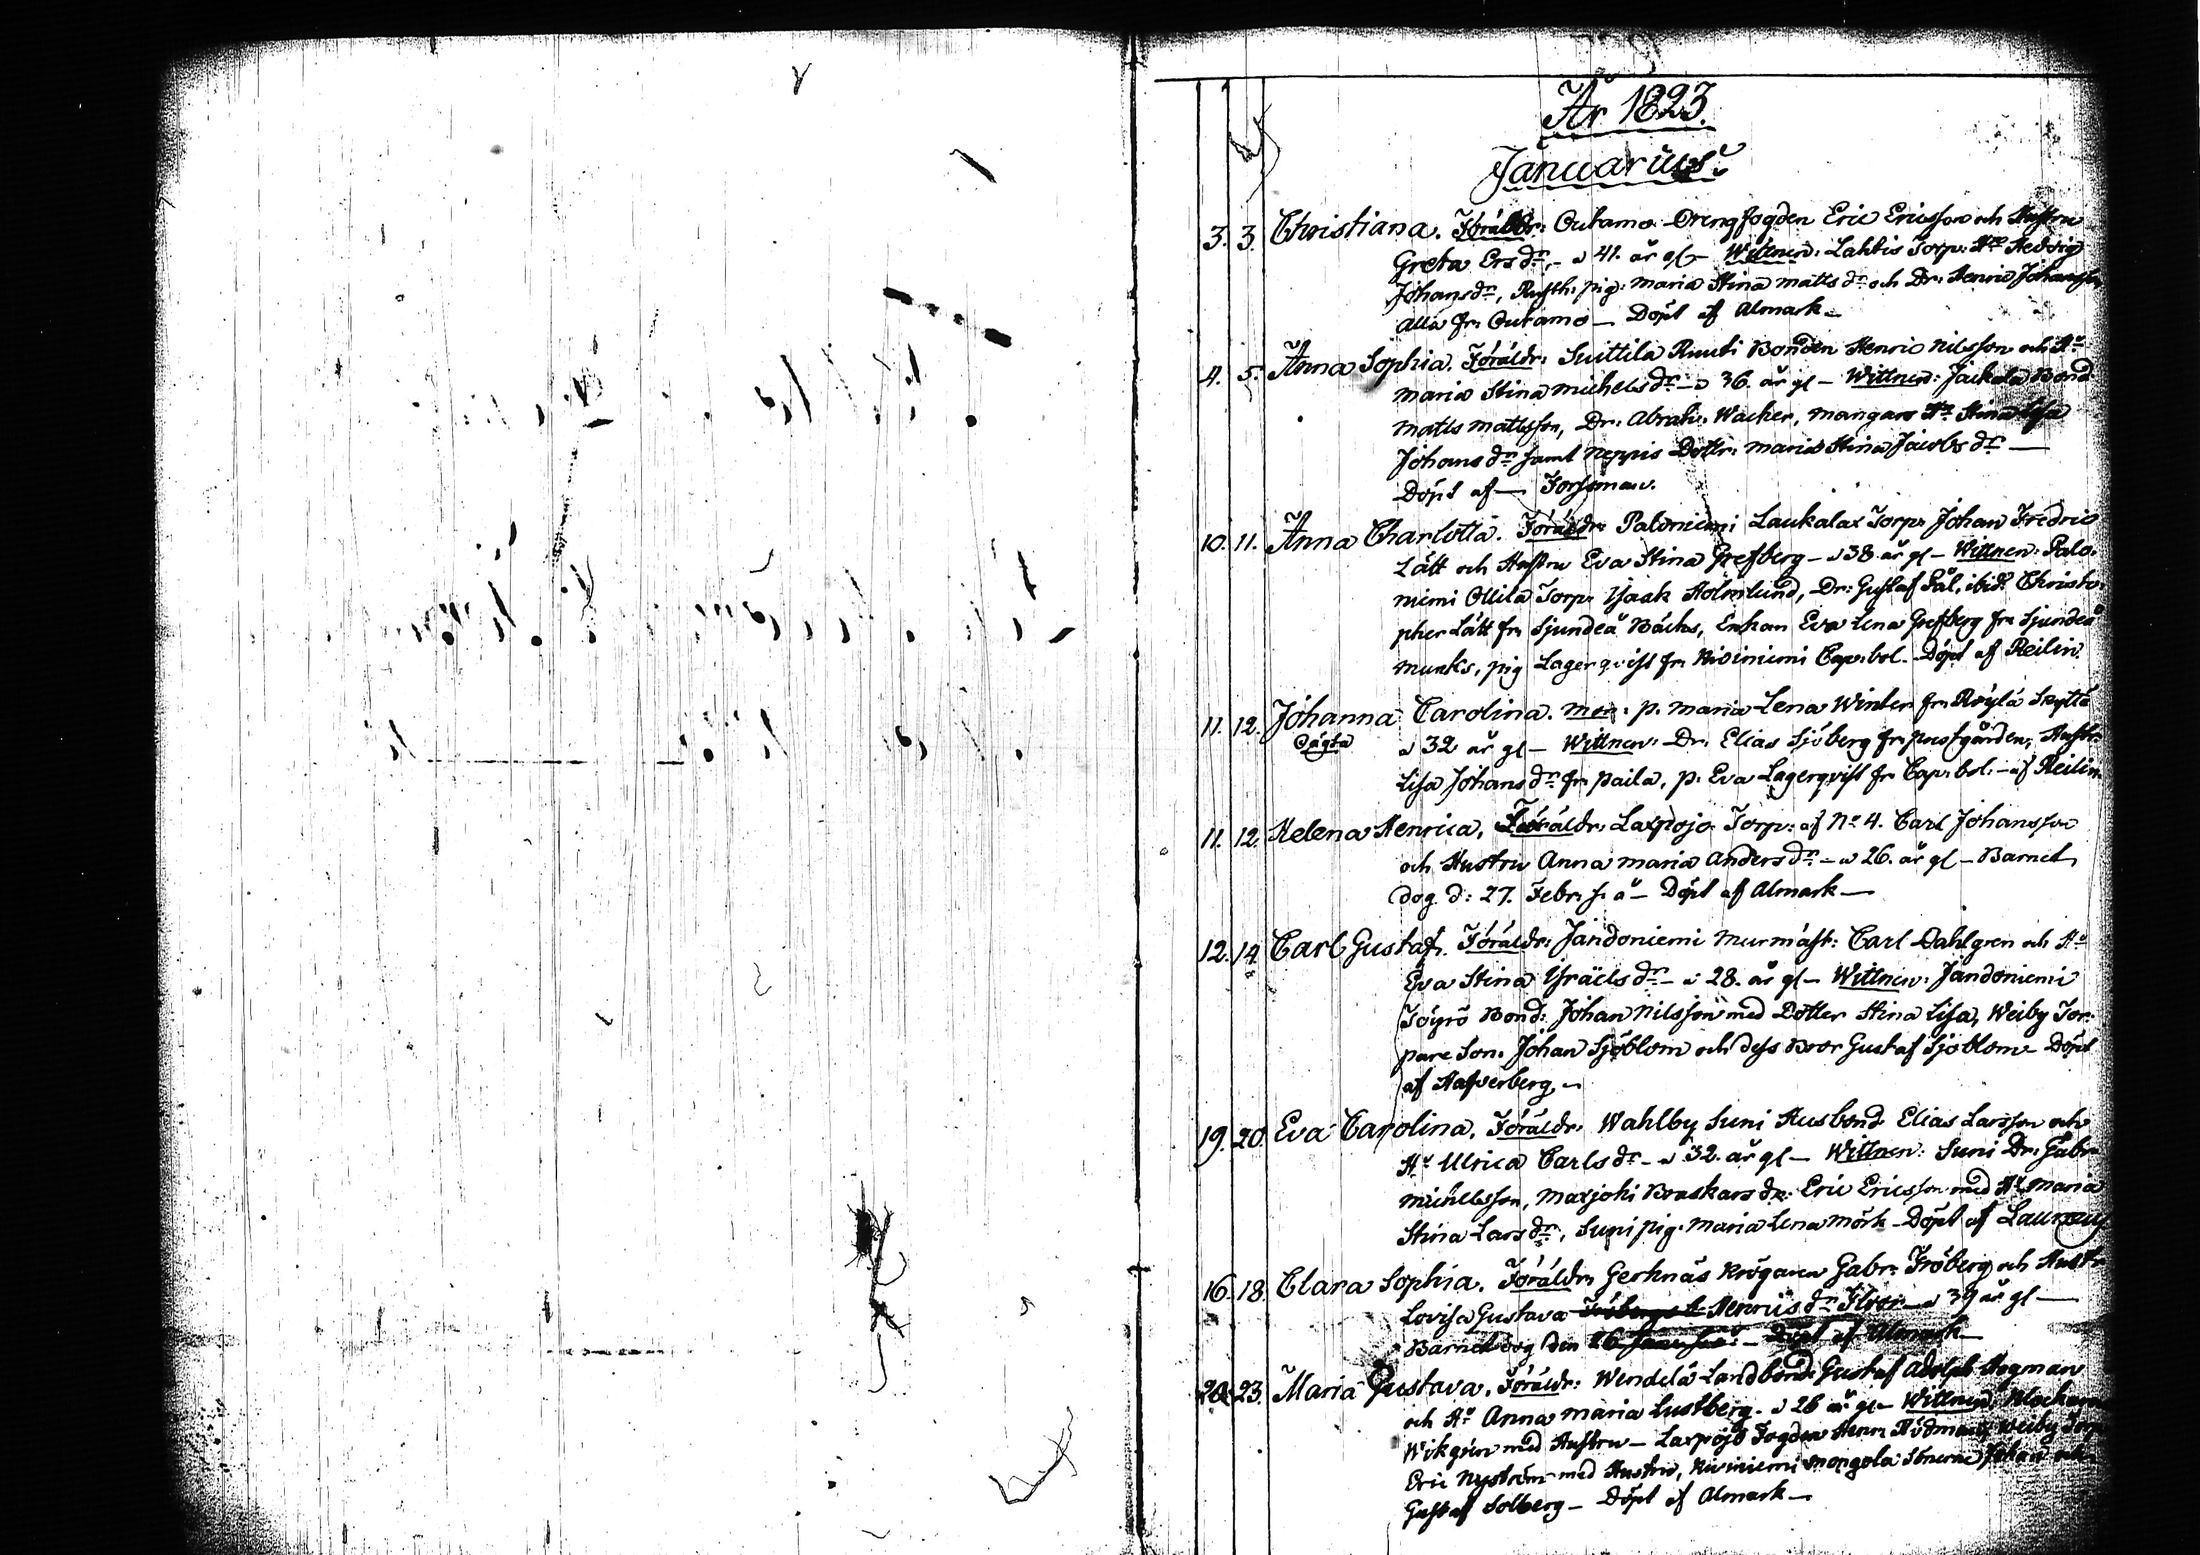 År 1823.
Januarius.
3. 3. Christiana. Föräldr: Outamo Drengfogden Eric Ericsson och Hustru
Greta Ersdr, - a 41. år gl - Wittnen: Lahtis Torp: Hu Hedvig
Johansdr, Rusth: pig: Maria Stina Mattsdr och Dr: Henric Johansson
alla fr: Outamo - Döpt af Almark -
4. 5. Anna Sophia. Föräldr: Suittila Ruuti Bonden Henric Nilsson och Hu
Maria Stina Michelsdr - a 36. år gl - Wittnen: Bond
Matts Mattsson, Dr: Abrah: Wacker, Mangars Hu Stina Lisa
Johansdr samt Neppis Dottr: Maria Stina Jacobsdr -
Döpt af - Forsman.
10. 11. Anna Charlotta. Föräldr: Paloniemi Laukalax Torp: Johan Fredric
Lätt och Hustru Eva Stina Grefberg - a 38 år gl - Wittnen: Palo-
niemi Ollila Torp: Isaak Holmlund, Dr: Gustaf ibid: Christo-
pher Lätt fr: Sjundeå Bäcks, Enkan Eva Lena Grefberg fr: Sjundeå
Munks, pig Lagerqvist fr: Kiviniemi Cap:bol. Döpt af Reilin.
11. 12. Johanna Carolina. Mor: p. Maria Lena Winter fr: Röylä Skyttä
Oägta a 32 år gl - Wittnen: Dr: Elias Sjöberg fr: prestgården, Hustr:
Lisa Johansdr fr: Paila, p. Eva Lagerqvist fr: Cap:bol: - af Reilin.
11. 12. Helena Henrica, Föräldr: Laxpojo Torp: af No 4. Carl Johansson
och Hustru Anna Maria Andersdr - a 26. år gl - Barnet
dog d: 27. Febr: s. å - Döpt af Almark -
12. 14. Carl Gustaf. Föräldr: Jandoniemi Murmäst: Carl Dahlgren och Hu
Eva Stina Israelsdr - a 28. år gl - Wittnen: Jandoniemi
Töyrö Bond: Johan Nilsson med Dotter Stina Lisa, Weiby Tor-
pare Son. Johan Sjöblom och dess Bror Gustaf Sjöblom - Döpt
af Hafverberg, -
19. 20. Eva Carolina. Föräldr: Wahlby Suni Husbond Elias Larsson och
Hu Ulrica Carlsdr - a 32. år gl - Wittnen: Suni Dr: Gabr:
Michelsson, Maxjoki Braskars dr: Eric Ericsson med Hu Maria
Stina Larsdr, Suni pig: Maria Lena Mörk - Döpt af
16. 18. Clara Sophia. Föräldr: Gerknäs Krögaren Gabr: Fröberg och Hustr
Lovisa Gustava Henricsdr - a 39 år gl -
Barnet dog den 26 - Döpt af Almark -
23. Maria Gustava. Föräldr: Wendelä Landbond: Gustaf Adolph Hogman
och Hu Anna Maria Lustberg. a 26 år gl - Wittnen: Klockaren
Wikgren med Hustru - Laxpojo Fogden Henr: Weiby Torp
Eric Nyström med Hustru, Kiviniemi Mongola Sönerne Johan och
Gustaf Solberg - Döpt af Almark -